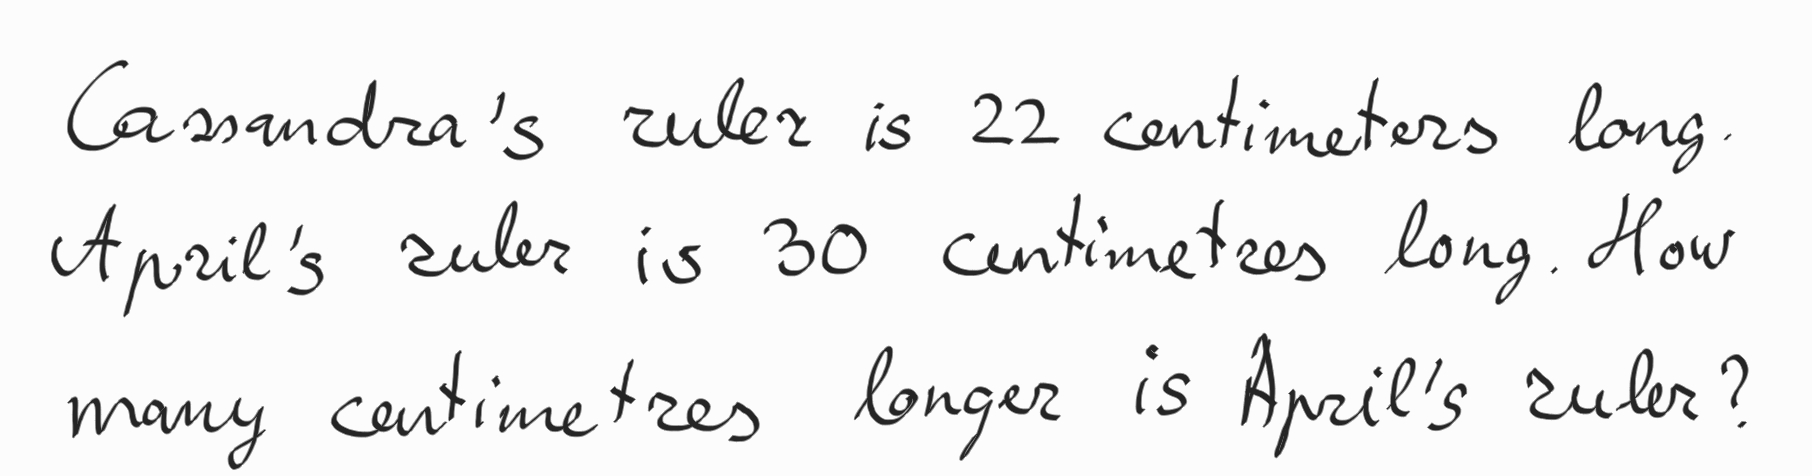 Cassandra's ruler is 22 centimeters long.
April's ruler is 30 centimetres long. How
many centimetres longer is April's ruler?